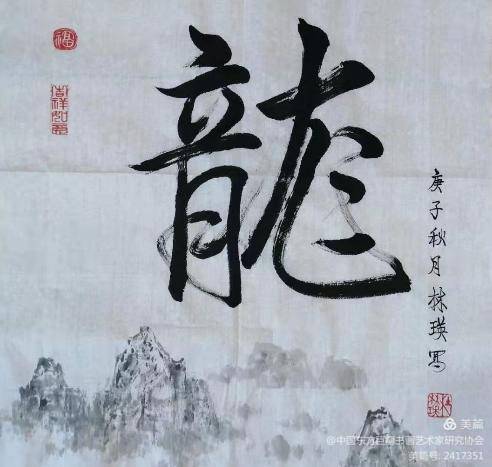 龍
庚子秋月林瑛寫
福
吉祥如意
美篇
@中国东方巨龙书画艺术家研究协会
美篇号: 2417351